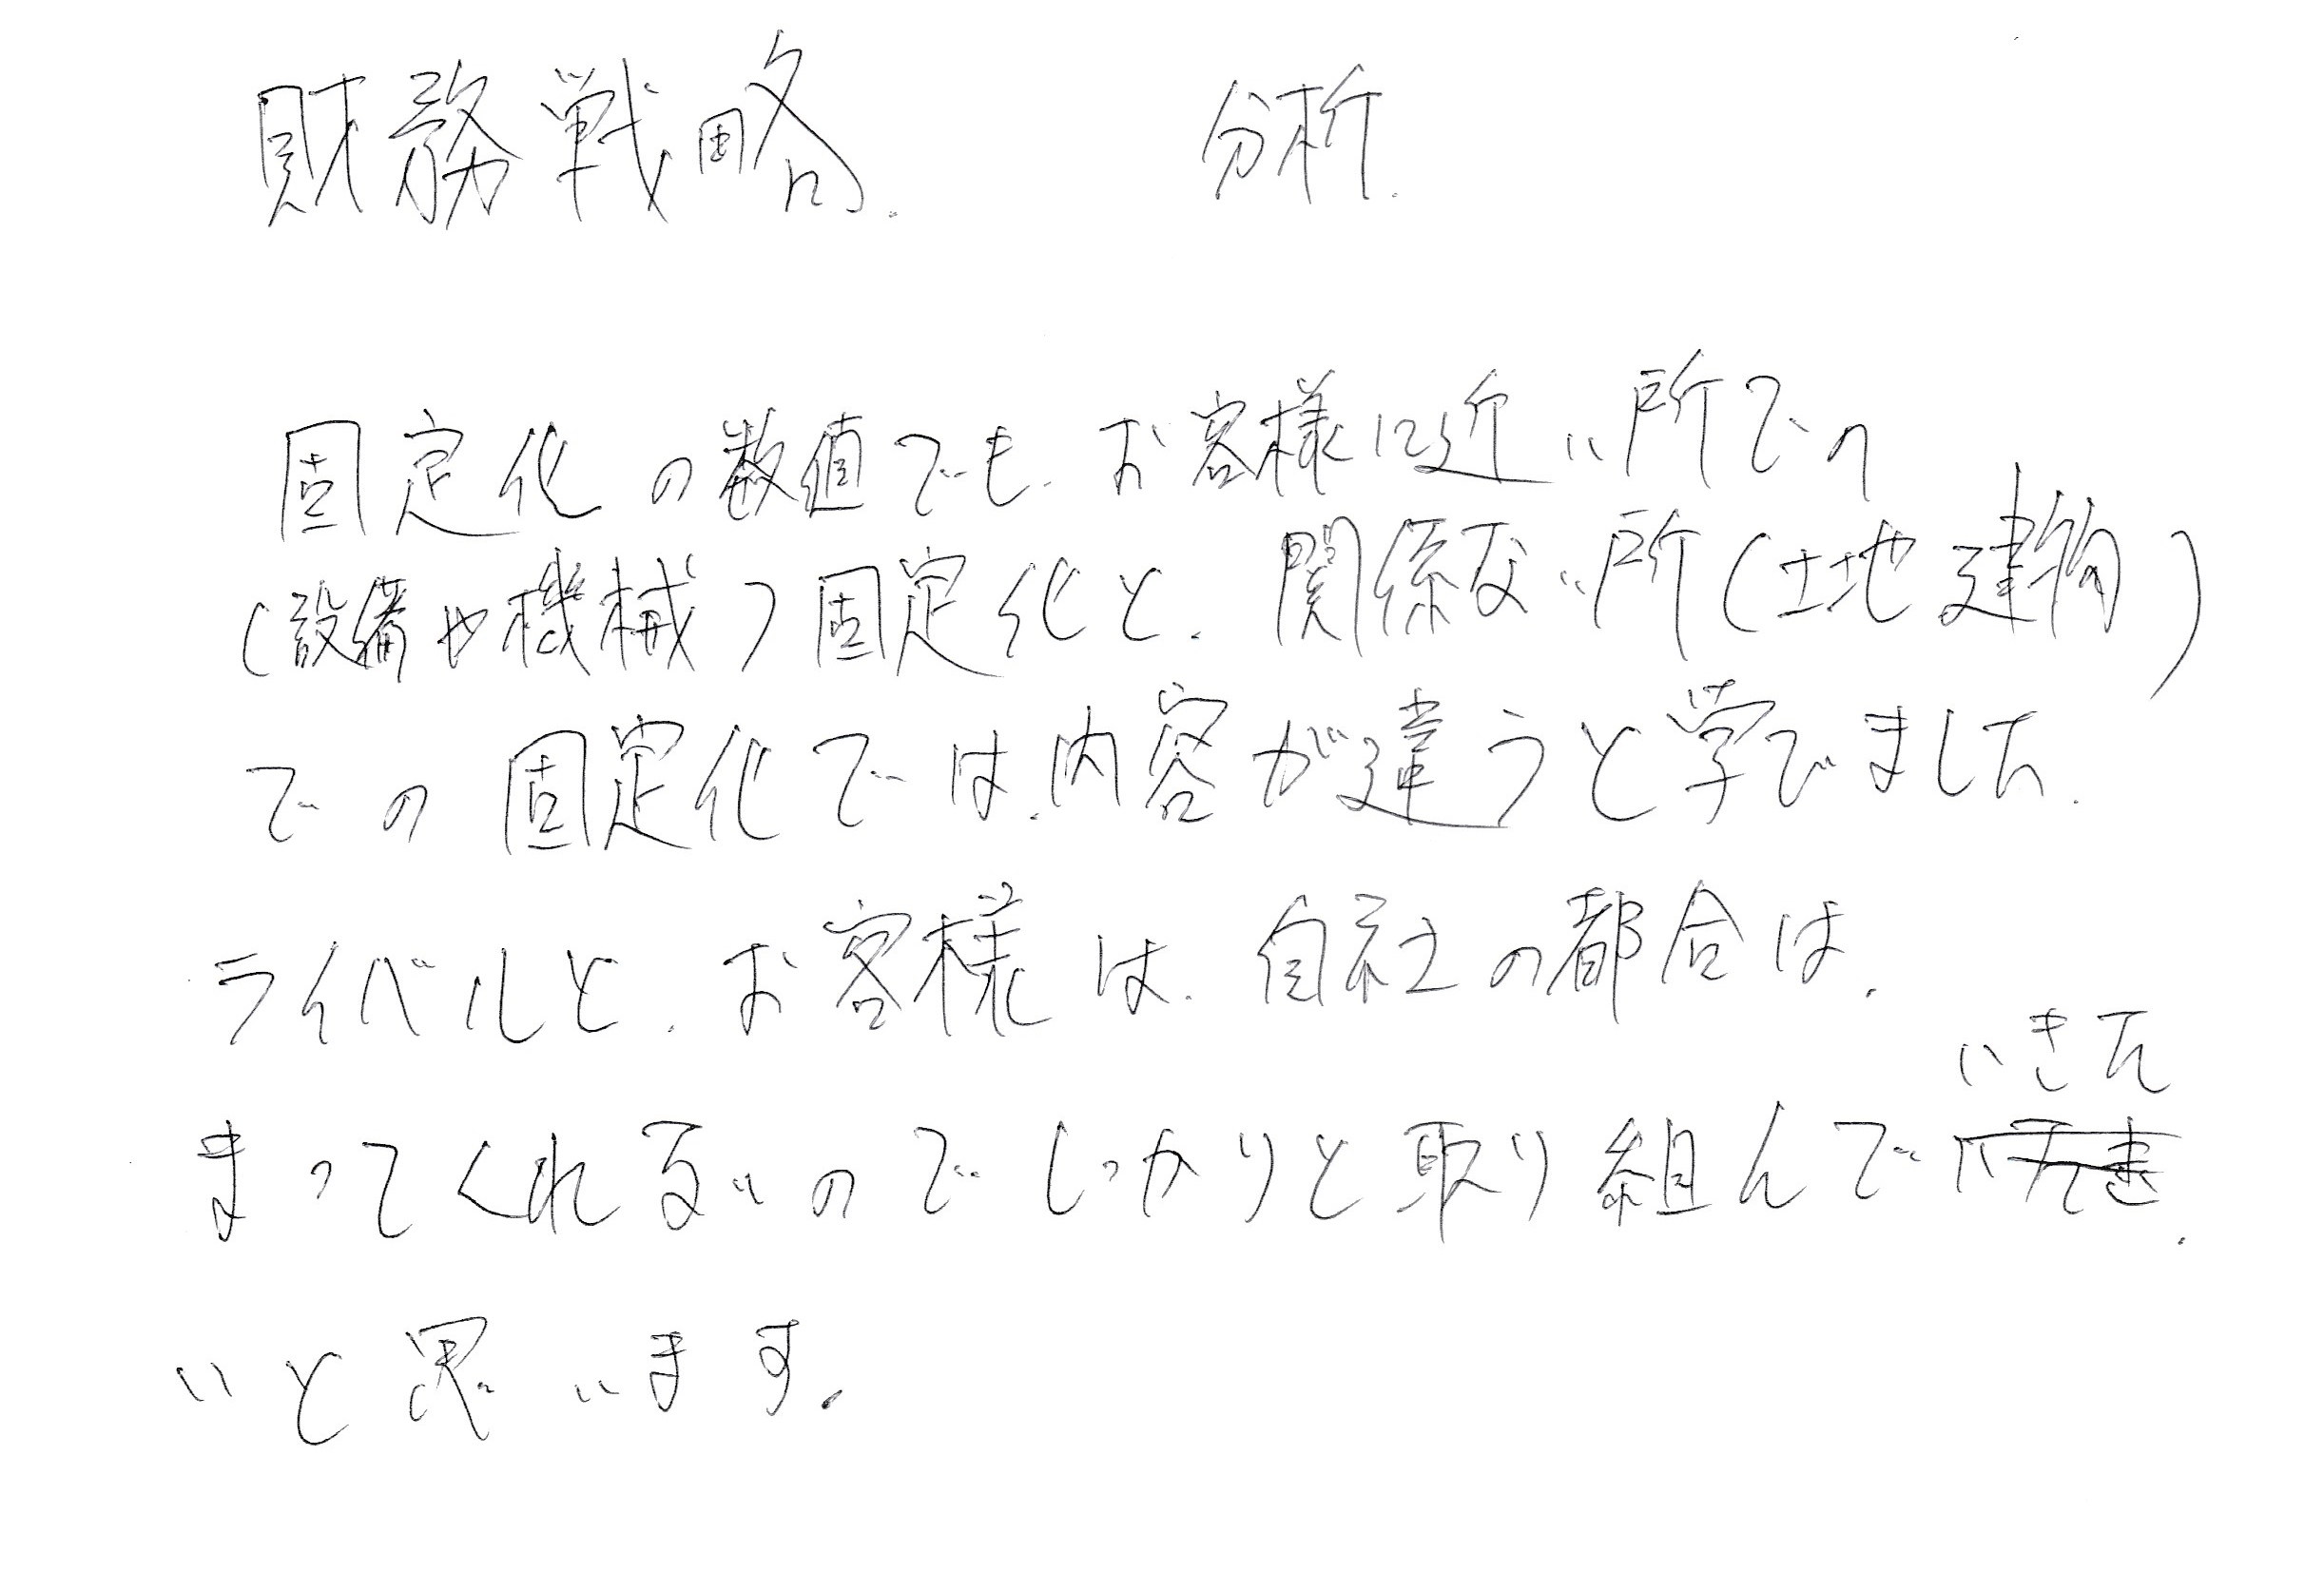 財務戦略. 分析.
固定化の数値でも. お客様に近い所での
(設備や機械)固定化と. 関係ない所(土地建物)
での固定化では.内容が違うと学でました.
ライバルと.お客様は.自社の都合は.
いきた
まってくれないのでしっかりと取り組んで
いと思います.